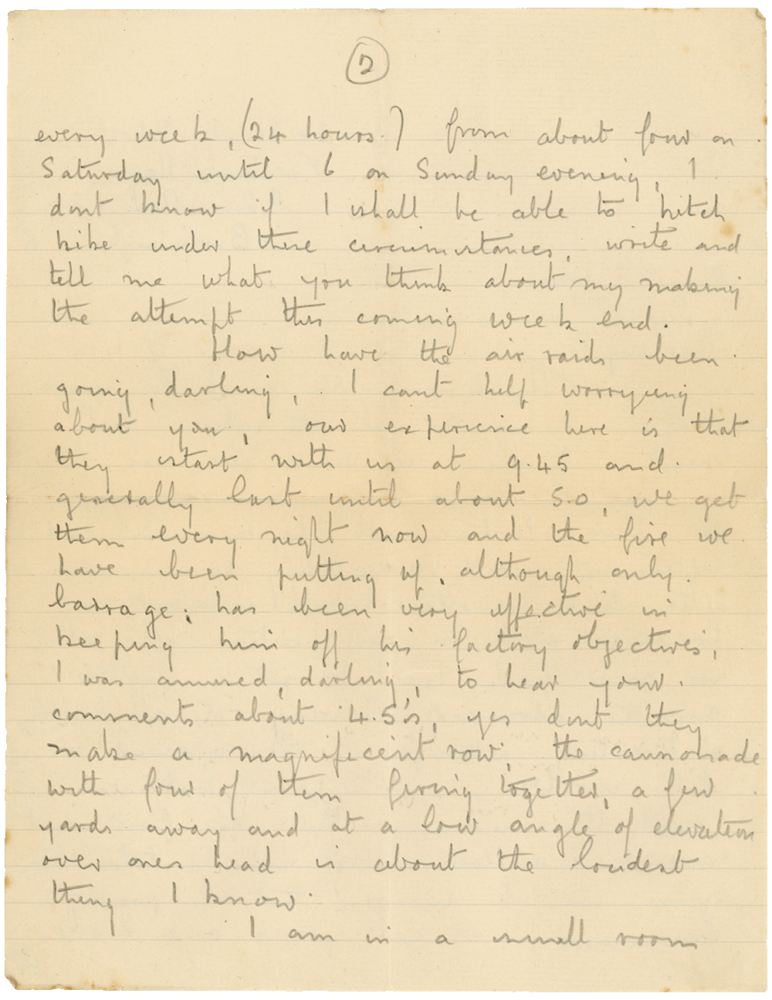 2
every week, (24 hours.) from about four on
Saturday until 6 on Sunday evening, I
dont know if I shall be able to hitch
hike under these circumstances, write and
tell me what you think about my making
the attempt this coming week end.
How have the air raids been
going, darling, I cant help worrying
about you, our experience here is that
they start with us at 9.45 and
generally last until about 5.0, we get
them every night now and the fire we
have been putting up, although only
barrage, has been very effective in
keeping him off his factory objectives,
I was amused, darling, to hear your
comments about 4.5's, yes dont they
make a magnificent row, the cannonade
with four of them firing together, a few
yards away and at a low angle of elevation
over ones head is about the loudest
thing I know.
I am in a small room